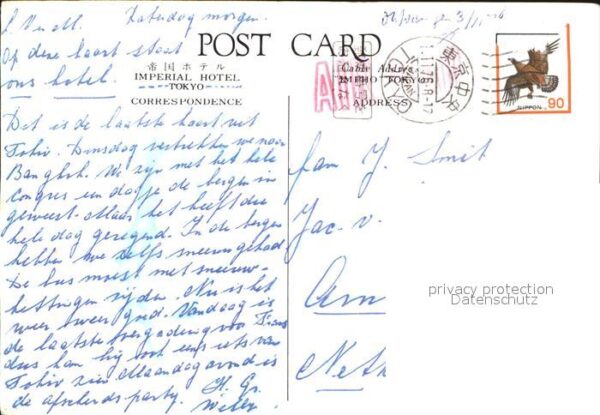 Zaterdag morgen.
Op deze kaart staat
ons hotel.
POST CARD
帝国ホテル
IMPERIAL HOTEL
TOKYO
CORRESPONDENCE
Cable Address
IMPHO TOKYO
ADDRESS
東京中央
TOKYO
NIPPON 90
Dit is de laatste kaart uit
Tokio. Dinsdag vertrekken we naar
Bangkok. We zijn met het hele
congres een dagje de bergen in
geweest. Maar het heeft die
hele dag geregend. In de bergen
hebben we zelfs sneeuw gehad
De bus moest met sneeuw-
kettingen rijden. Nu is het
weer weer goed. Vandaag is
de laatste vergadering voo Frans
dus kan hij ook eens iets van
Tokio zien. Maandagavond is
de afscheids party. H. Gr.
Willy
Fam J. Smit
Jac. v.
privacy protection
Datenschutz